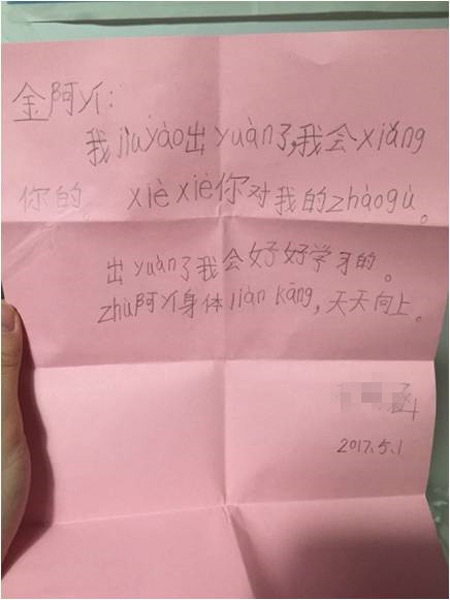 金阿丫:
我jiuyào出yuàn了,我会xiǎng
你的。xièxiè你对我的zhàogù。
出yuàn了我会好好学习的。
zhù阿丫身体jiànkāng,天天向上。
涵
2017.5.1